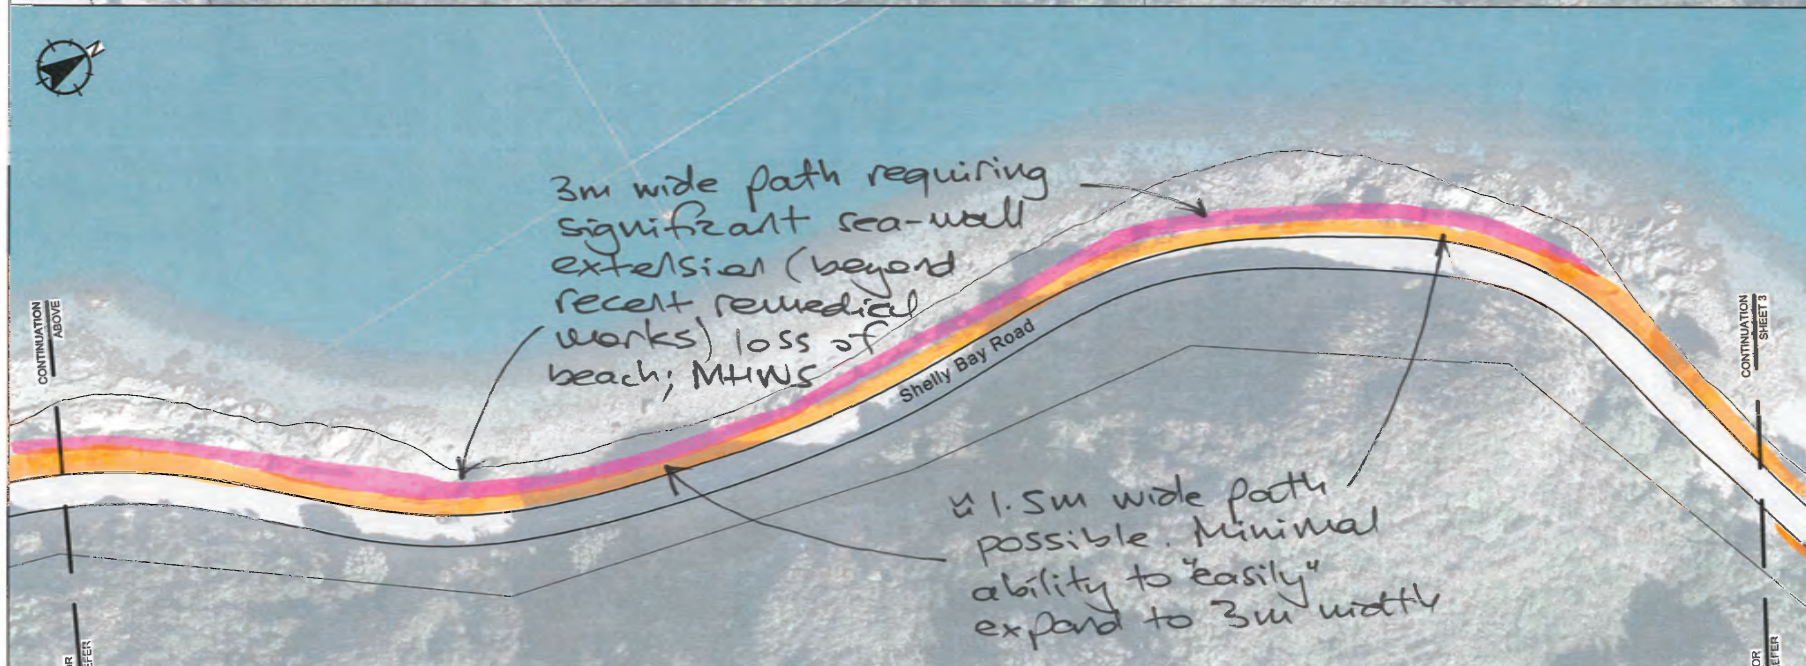 N
3m wide path requiring
significant sea-wall
extension (beyond
recent remedial
works) loss of
beach; MHWS
CONTINUATION
ABOVE
Shelly Bay Road
CONTINUATION
SHEET 3
1.5m wide path
possible. Minimal
ability to "easily"
expand to 3m width
OR
EFER
OR
EFER